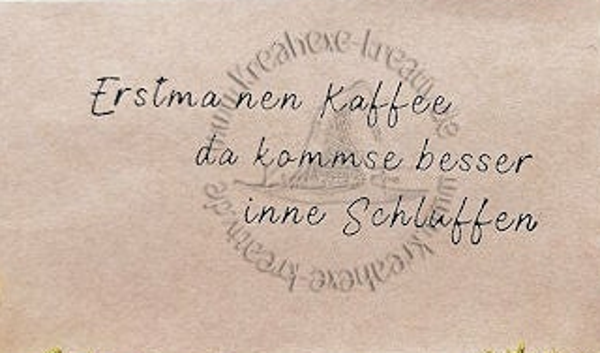 Erstma nen Kaffee
da kommse besser
inne Schluffen
www.kreahexe-kreativ.de
www.kreahexe-kreativ.de